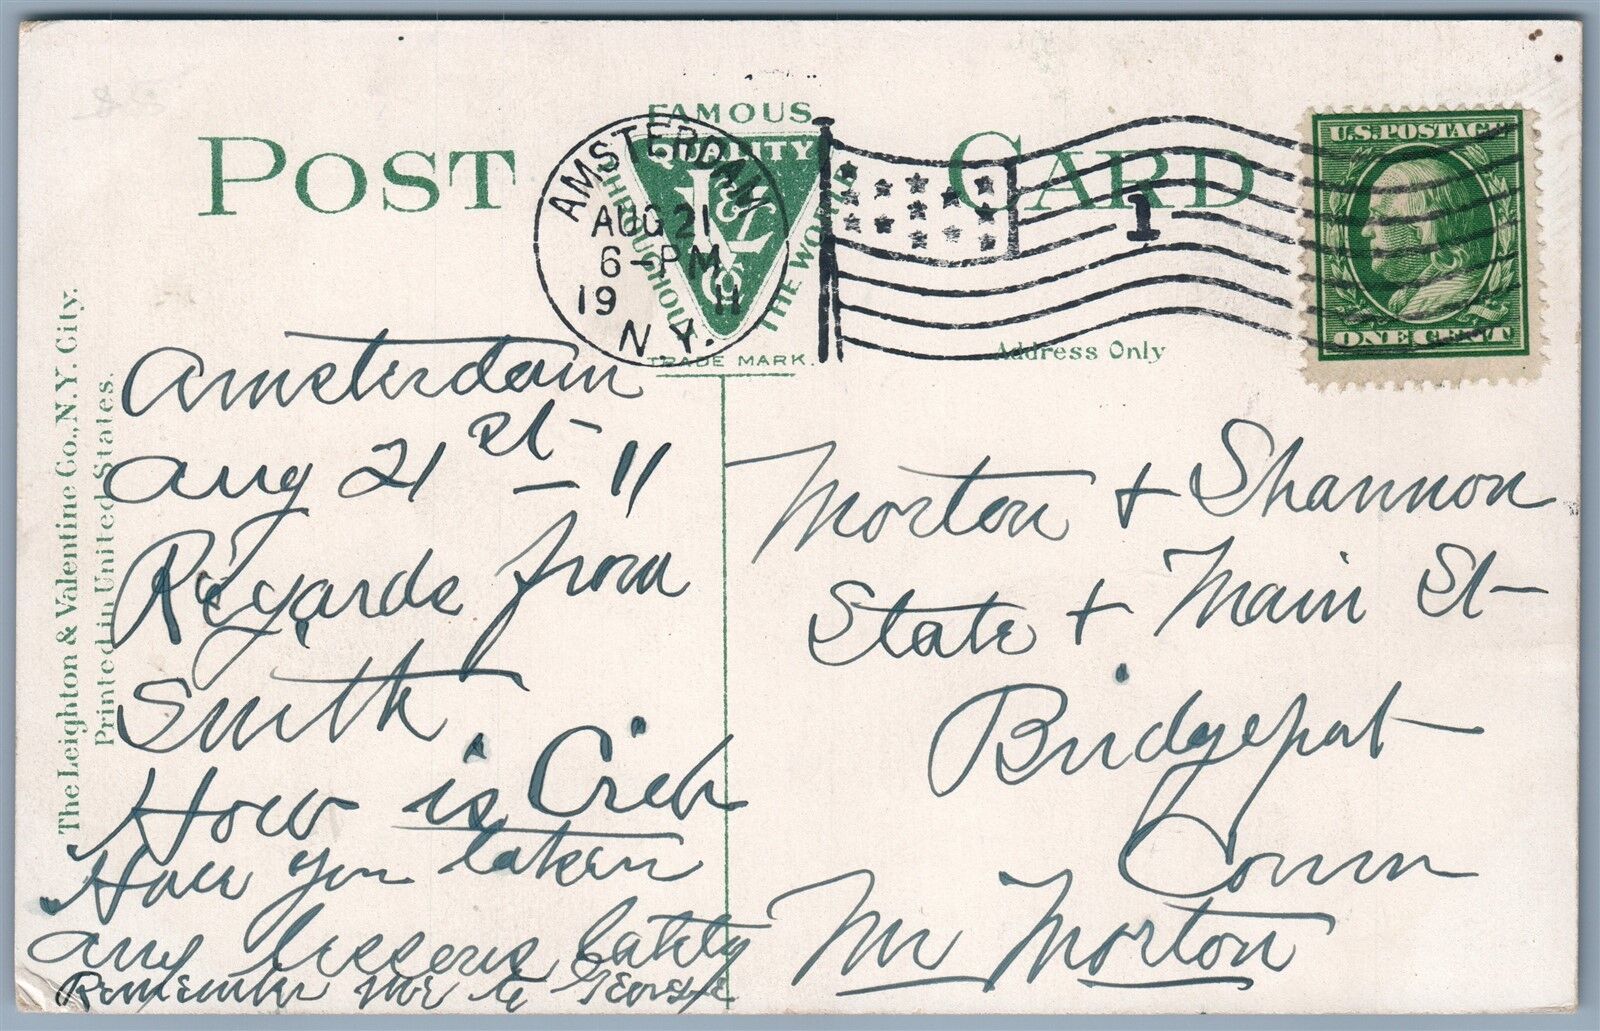 POST CARD
FAMOUS
QUALITY
THROUGHOUT THE WORLD
L & V Co
TRADE MARK.
AMSTERDAM
AUG 21
6-PM
19 11
N.Y.
1
U.S. POSTAGE
ONE CENT
Address Only
The Leighton & Valentine Co., N.Y. City.
Printed in United States.
Amsterdam
Aug 21st - 11
Regards from
Smith
How is
Have you taken
any lessons lately
Remember me to George
Morton + Shannon
State + Main St-
Bridgeport
Conn
Mr Morton